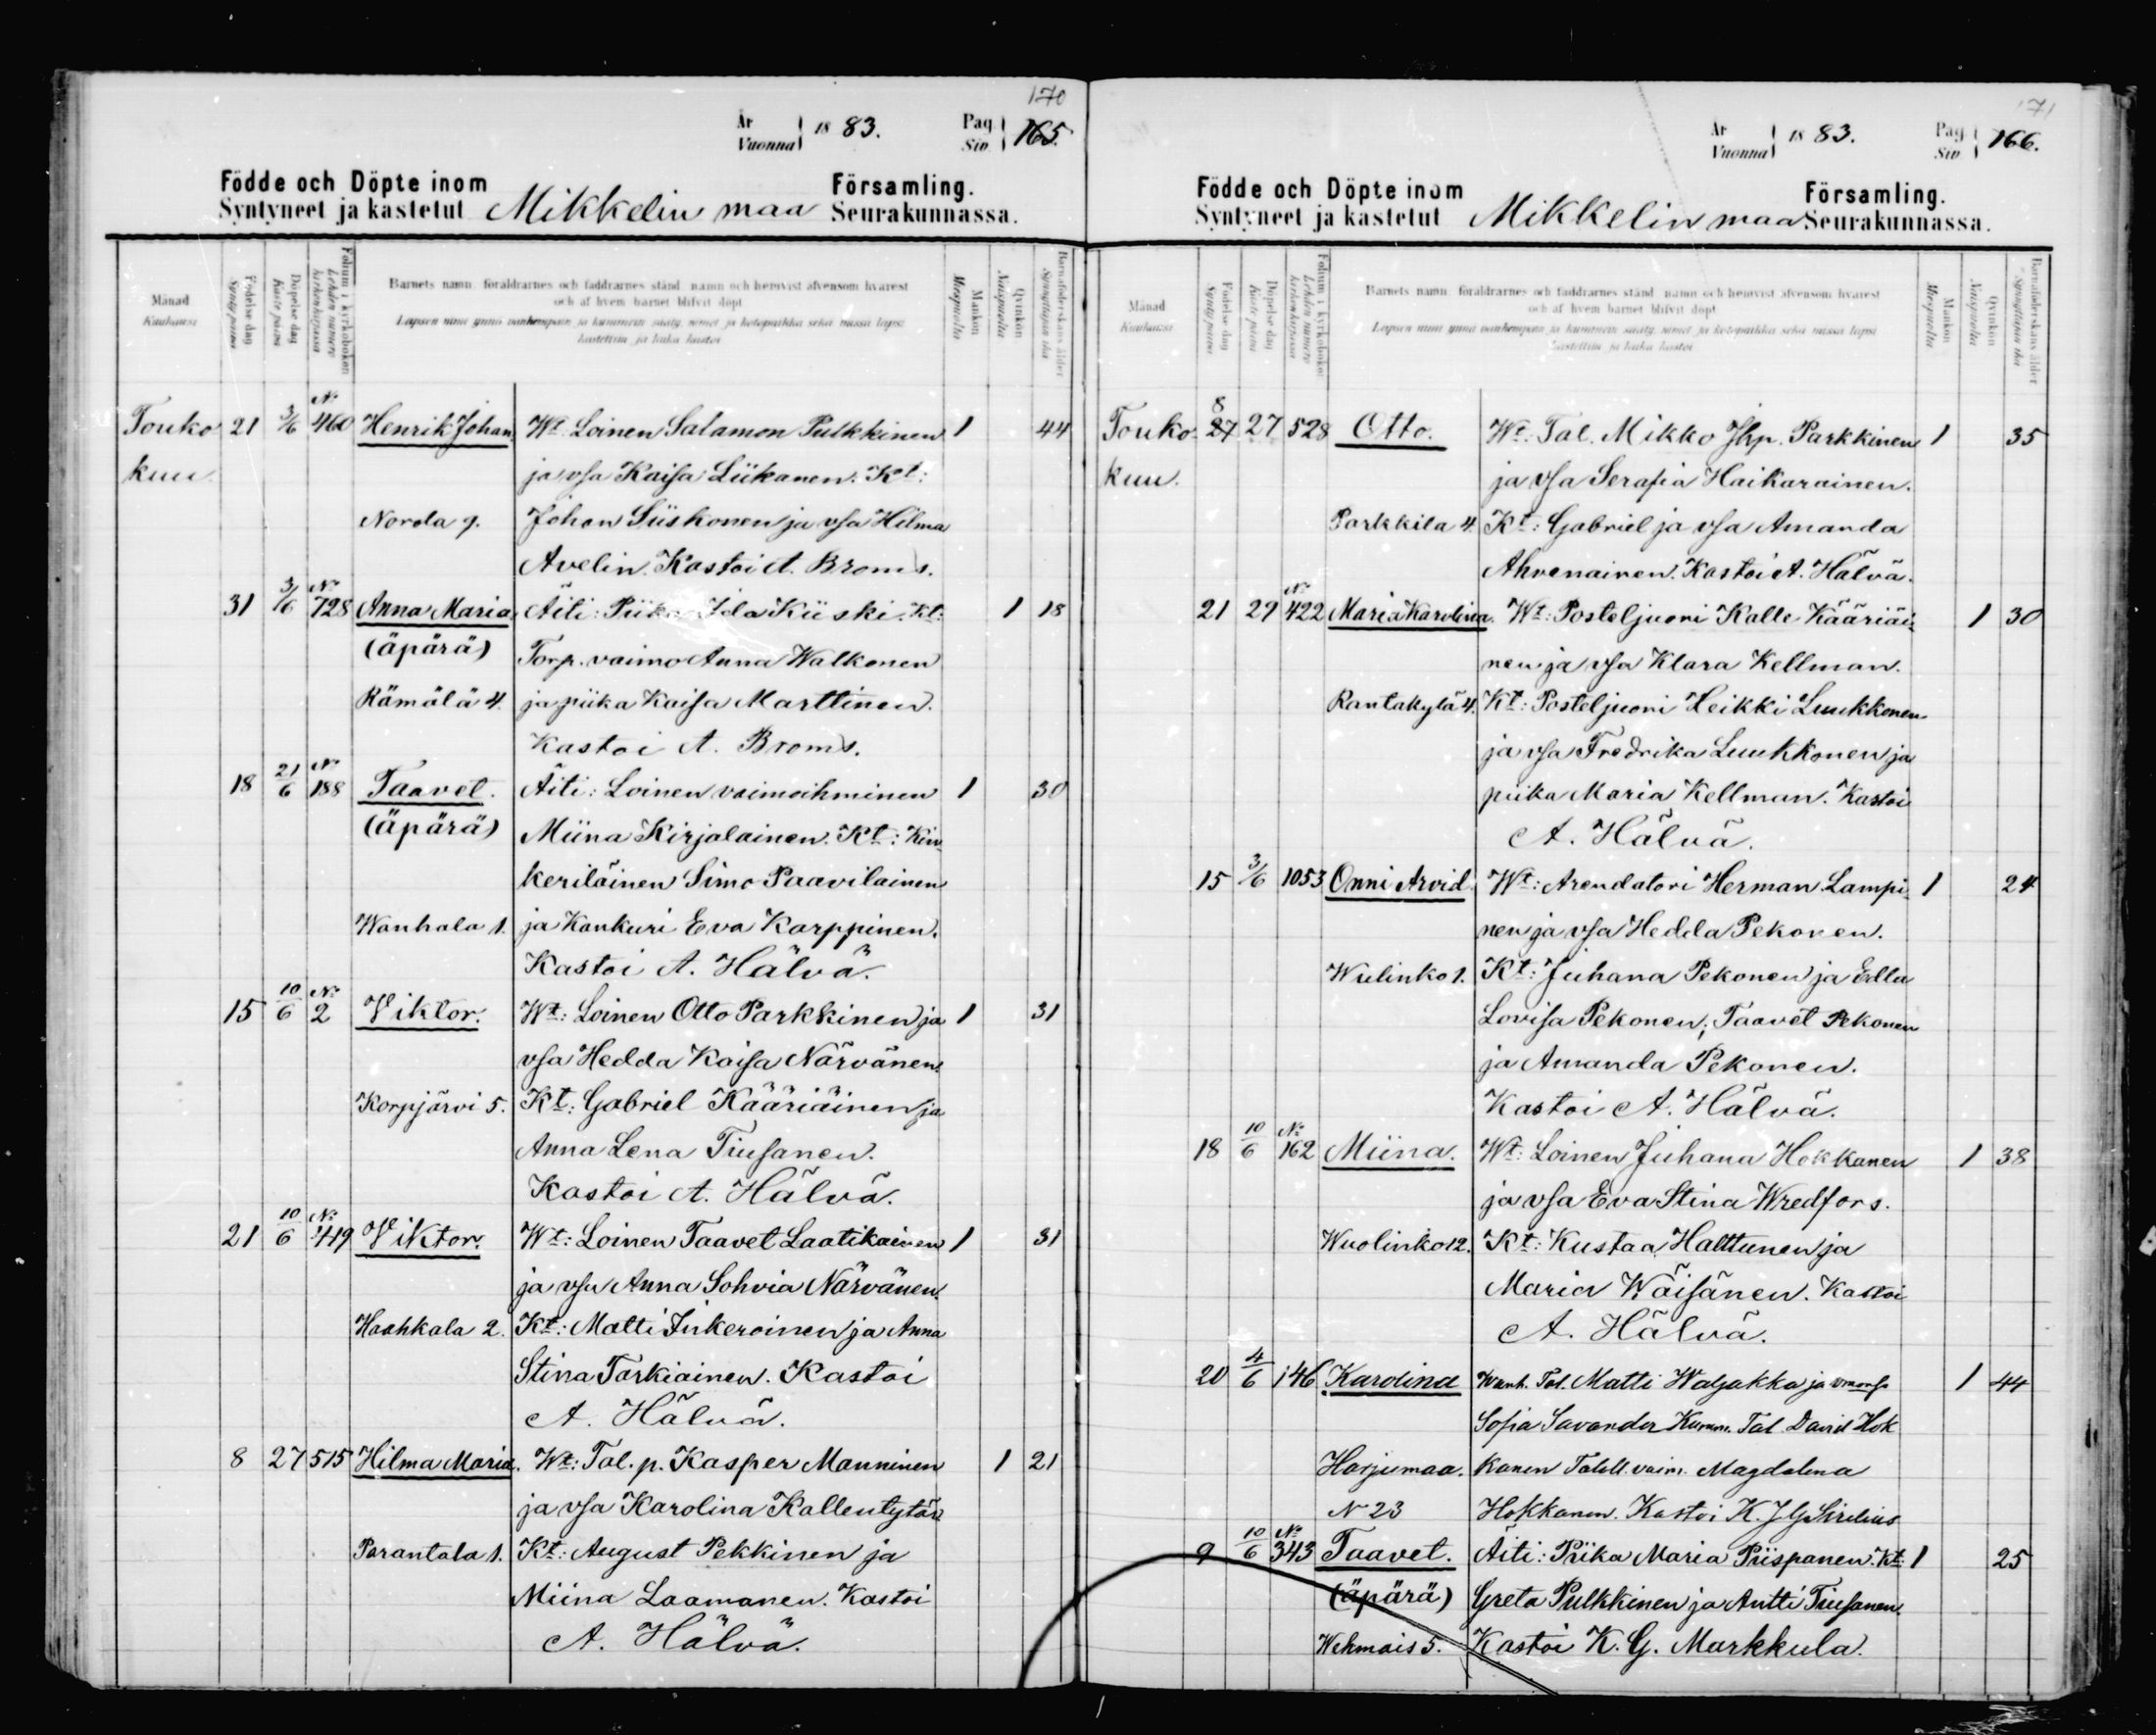 170
År
Vuonna 1883.
Pag
Siv 165.
Födde och Döpte inom
Församling.
Syntyneet ja kastetut Mikkelin maa Seurakunnassa.
Månad
Kuukausi
Födelse dag
Synty päivä
Döpelse dag
Kaste päivä
Folium i kyrkoboken
Lehden numero kirkonkirjassa
Barnets namn, föräldrarnes och faddrarnes stånd, namn och hemvist äfvensom hvarest
och af hvem barnet blifvit döpt
Lapsen nimi ynnä vanhempain ja kummein sääty, nimet ja kotopaikka sekä missä lapsi
kastettiin ja kuka kastoi
Mankön
Miespuolia
Qvinkön
Naispuolia
Barnaföderskans ålder
Synnyttäjän ikä
Touko 21 3/6 No 460 Henrik Johan Wt. Loinen Salamon Pulkkinen 1 44
kuu ja vsa Kaisa Liikanen. Kt:
Norola 9. Johan Siiskonen ja vsa Hilma
Avelin. Kastoi A. Broms.
31 3/6 No 728 Anna Maria Äiti: Piika Ida Kiiski. Kt: 1 18
(äpärä) Torp. vaimo Anna Walkonen
Rämälä 4 ja piika Kaisa Marttinen.
Kastoi A. Broms.
18 21/6 No 188 Taavet. Äiti: Loinen vaimoihminen 1 30
(äpärä) Miina Kirjalainen. Kt: Kin-
keriläinen Simo Paavilainen
Wanhala 1. ja Kankuri Eva Karppinen.
Kastoi A. Hälvä.
15 10/6 No 2 Viktor. Wt: Loinen Otto Parkkinen ja 1 31
vsa Hedda Kaisa Närvänen.
Korpjärvi 5. Kt: Gabriel Kääriäinen ja
Anna Lena Tiusanen.
Kastoi A. Hälvä.
21 10/6 No 419 Viktor. Wt: Loinen Taavet Laatikainen 1 31
ja vsa Anna Sohvia Närvänen.
Haahkala 2. Kt: Matti Inkeroinen ja Anna
Stina Tarkiainen. Kastoi
A. Hälvä.
8 27 515 Hilma Maria. Wt: Tal. p. Kasper Manninen 1 21
ja vsa Karolina Kallentytär
Parantala 1. Kt: August Pekkinen ja
Miina Laamanen. Kastoi
A. Hälvä.
171
År
Vuonna 1883.
Pag
Siv 166.
Födde och Döpte inom
Församling.
Syntyneet ja kastetut Mikkelin maa Seurakunnassa.
Månad
Kuukausi
Födelse dag
Synty päivä
Döpelse dag
Kaste päivä
Folium i kyrkoboken
Lehden numero kirkonkirjassa
Barnets namn, föräldrarnes och faddrarnes stånd, namn och hemvist äfvensom hvarest
och af hvem barnet blifvit döpt
Lapsen nimi ynnä vanhempain ja kummein sääty, nimet ja kotopaikka sekä missä lapsi
kastettiin ja kuka kastoi
Mankön
Miespuolia
Qvinkön
Naispuolia
Barnaföderskans ålder
Synnyttäjän ikä
8
Touko 27 27 528 Otto. Wt: Tal. Mikko Jhp. Parkkinen 1 35
kuu. ja vsa Serafia Haikarainen.
Parkkila 4 Kt: Gabriel ja vsa Amanda
Ahvenainen. Kastoi A. Hälvä.
21 29 No 422 Maria Karolina. Wt: Posteljuoni Kalle Kääriäi- 1 30
nen ja vsa Klara Kellman.
Rantakylä 4. Kt: Posteljuoni Heikki Luukkonen
ja vsa Fredrika Luukkonen ja
piika Maria Kellman. Kastoi
A. Hälvä.
15 3/6 1053 Onni Arvid. Wt: Arendatori Herman Lampi- 1 24
nen ja vsa Hedda Pekonen.
Wulinko 1. Kt: Juhana Pekonen ja Edla
Lovisa Pekonen; Taavet Pekonen
ja Amanda Pekonen.
Kastoi A. Hälvä.
18 10/6 No 162 Miina. Wt: Loinen Juhana Hokkanen 1 38
ja vsa Eva Stina Wredfors.
Wuolinko 12. Kt: Kustaa Halttunen ja
Maria Wäisänen. Kastoi
A. Hälvä.
20 4/6 146 Karolina Wanh. Tal. Matti Waljakka ja vmonsa 1 44
Sofia Savander Kumm. Tal David Hok
Harjumaa. kanen Talell. vaim. Magdalena
N 23 Hokkanen. Kastoi K. J G Sirelius
9 10/6 No 343 Taavet. Äiti: Piika Maria Piispanen. Kt: 1 25
(äpärä) Greta Pulkkinen ja Antti Tiusanen.
Wehmais 5. Kastoi K. G. Markkula.